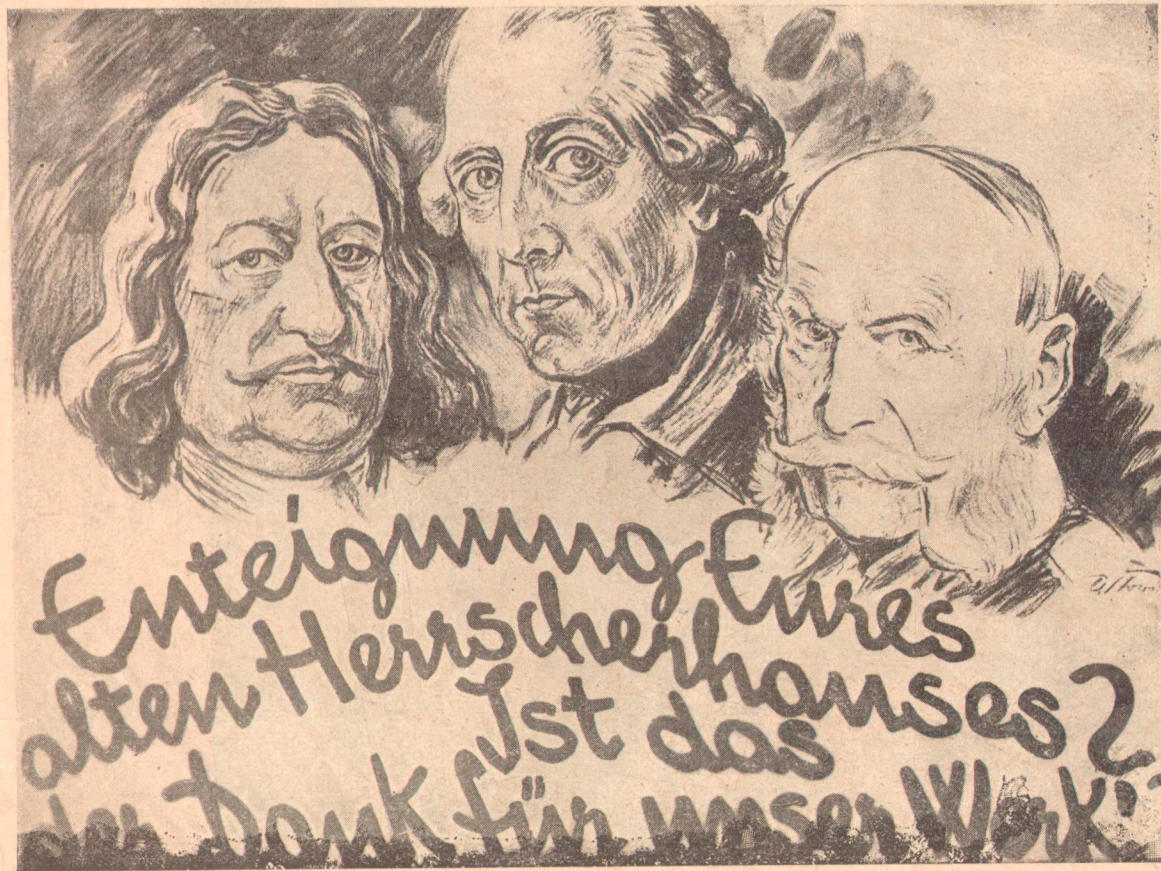 Enteignung Eures
alten Herrscherhauses?
Ist das
der Dank für unser Werk?